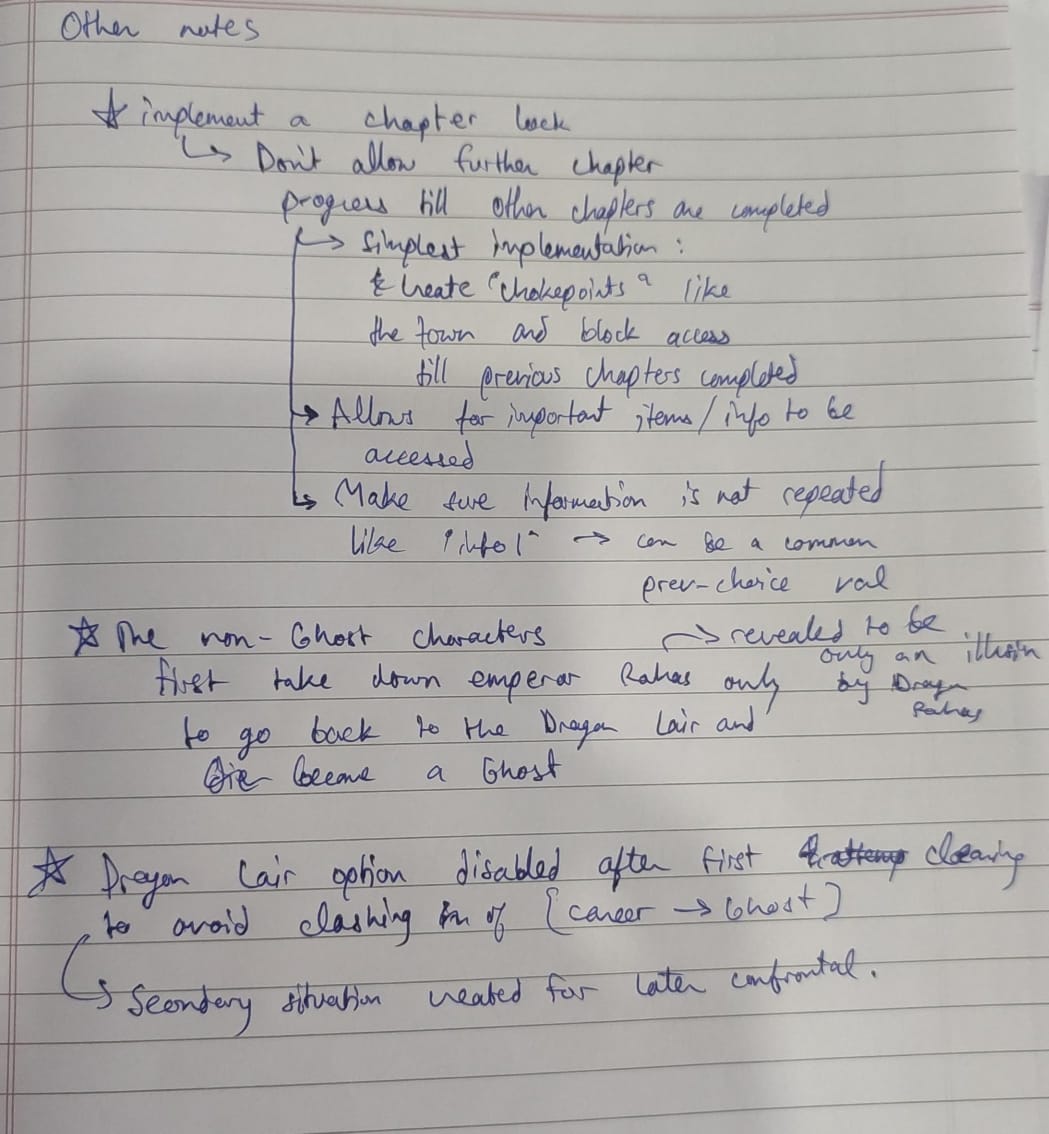 Other notes
☆ implement a chapter lock
↳ Don't allow further chapter
progress till other chapters are completed
↳ Simplest implementation :
Create "chokepoints" like
the town and block access
till previous chapters completed
→ Allows for important items/info to be
accessed
↳ Make sure information is not repeated
like "info1" → can be a common
prev-choice val
☆ The non-Ghost characters
first take down emperor Rahas only
→ revealed to be
only an illusin
by Dragn
Rahas
to go back to the Dragon Lair and
die become a Ghost
☆ Dragon Lair option disabled after first clearing
to avoid clashing of [career → Ghost]
↳ Secondary situation created for later confrontal.